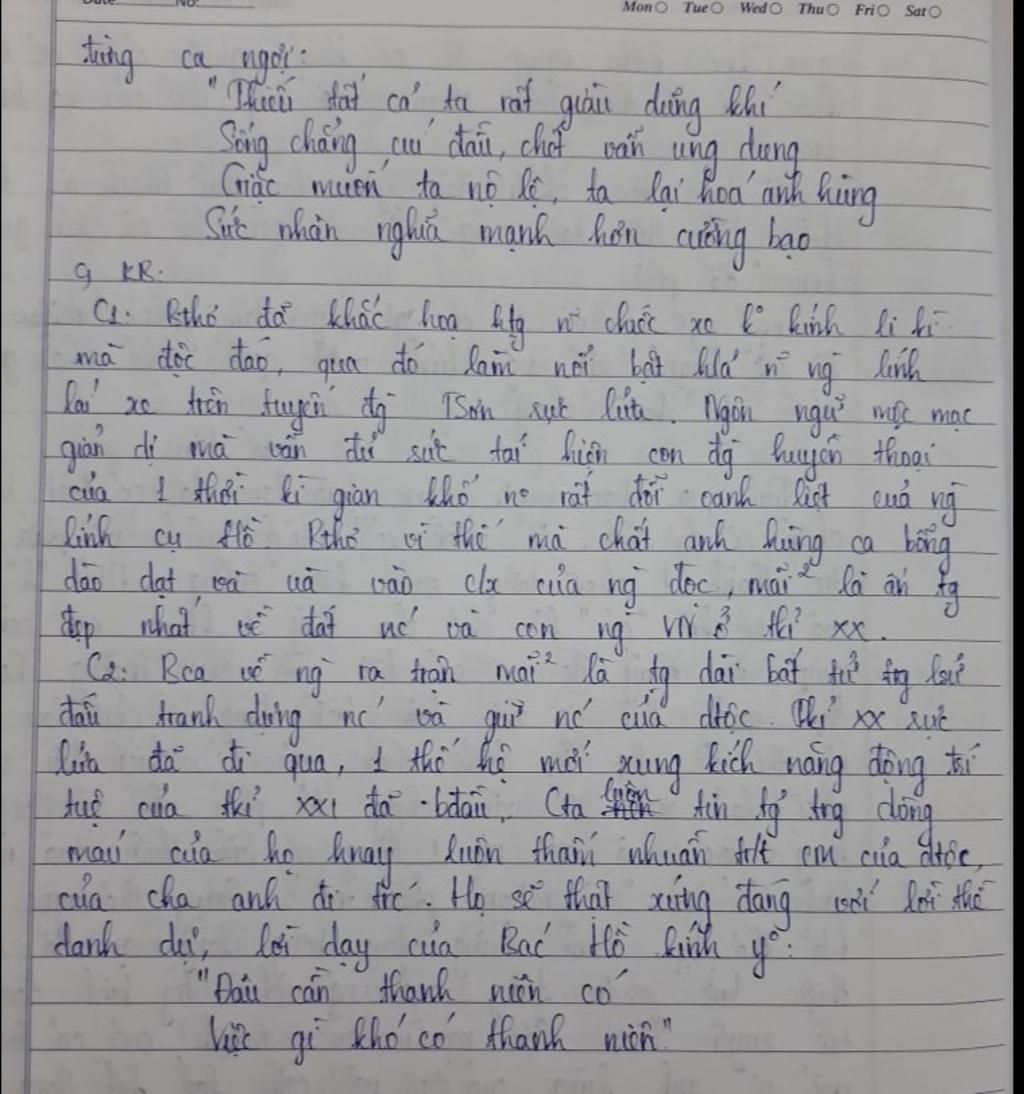 No.
Mon Tue Wed Thu Fri Sat
từng ca ngợi:
"Thiếu tất cả ta rất giàu dũng khí
Sống chẳng cúi đầu, chết vẫn ung dung
Giặc muốn ta nô lệ, ta lại hoá anh hùng
Sức nhân nghĩa mạnh hơn cường bạo
9 KB.
C1: Bthơ đã khắc hoạ htg n~ chiếc xe k° kính li kì
mà độc đáo, qua đó làm nổi bật h/á n~ ng lính
lái xe trên tuyến đg TSơn sực lửa. Ngôn ngữ mộc mạc
giản dị mà vẫn đủ sức tái hiện con đg huyền thoại
của 1 thời kì gian khổ n° rất đỗi oanh liệt của ng
lính cụ Hồ. Bthơ vì thế mà chất anh hùng ca bỗng
dào dạt và uà vào c/x của ng đọc, mãi² là ấn tg
đẹp nhất về đất nc' và con ng VN ở tkỉ XX.
C2: Bca về ng ra trận mãi² là tg đài bất tử trg lsử
đấu tranh dựng nc' và giữ nc' của dtộc. Tkỉ XX sực
lửa đã đi qua, 1 thế hệ mới xung kích năng động trí
tuệ của tkỉ XXI đã bđầu. Cta luôn tin tg' trg dòng
máu của họ hnay luôn thấm nhuần tr/t CM của dtộc,
của cha anh đi trc'. Họ sẽ thật xứng đáng với lời thề
danh dự, lời dạy của Bác Hồ kính y°:
"Đâu cần thanh niên có
Việc gì khó có thanh niên"